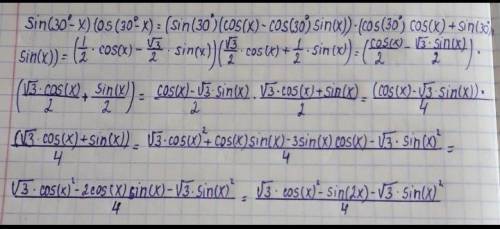 Sin(30°-x)Cos(30°-x)=(Sin(30°)(cos(x)-cos(30°)sin(x))·(cos(30°)cos(x)+sin(30°)
sin(x))=(1/2·cos(x)-√3/2·sin(x))(√3/2·cos(x)+1/2·sin(x))=(cos(x)/2-√3·sin(x)/2)·
(√3·cos(x)/2+sin(x)/2)=cos(x)-√3·sin(x)/2·√3·cos(x)+sin(x)/2=(cos(x)-√3·sin(x))·/4
(√3·cos(x)+sin(x))/4=√3·cos(x)²+cos(x)sin(x)-3sin(x)cos(x)-√3·sin(x)²/4=
√3·cos(x)²-2cos(x)sin(x)-√3·sin(x)²/4=√3·cos(x)²-sin(2x)-√3·sin(x)²/4